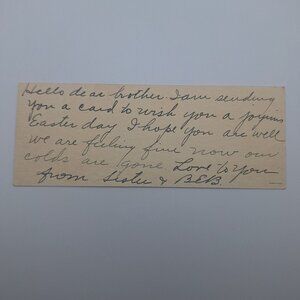 Hello dear brother I am sending
you a card to wish you a joyous
Easter day I hope you are well
we are feeling fine now our
colds are gone Love to you
from Sister & B.E.B.